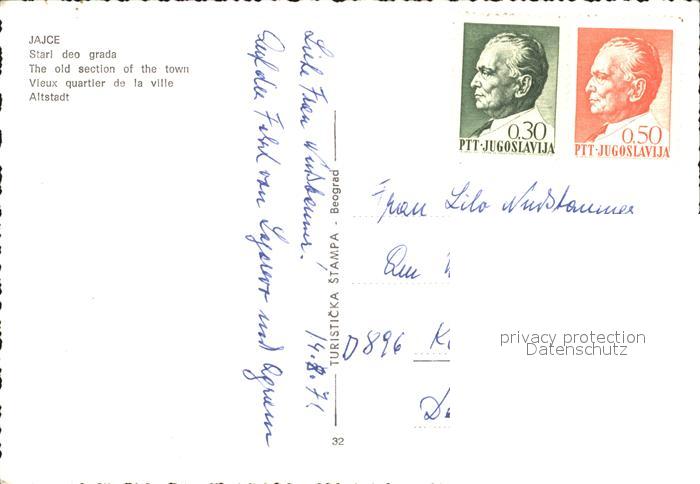 JAJCE
Stari deo grada
The old section of the town
Vieux quartier de la ville
Altstadt
0.30
PTT·JUGOSLAVIJA
0.50
PTT·JUGOSLAVIJA
Liebe Frau Nußbaumer!
14.8.71
Auf der Fahrt von Sarajevo und Agram
TURISTIČKA ŠTAMPA - Beograd
32
Frau Lilo Nußbaumer
D 896
privacy protection
Datenschutz